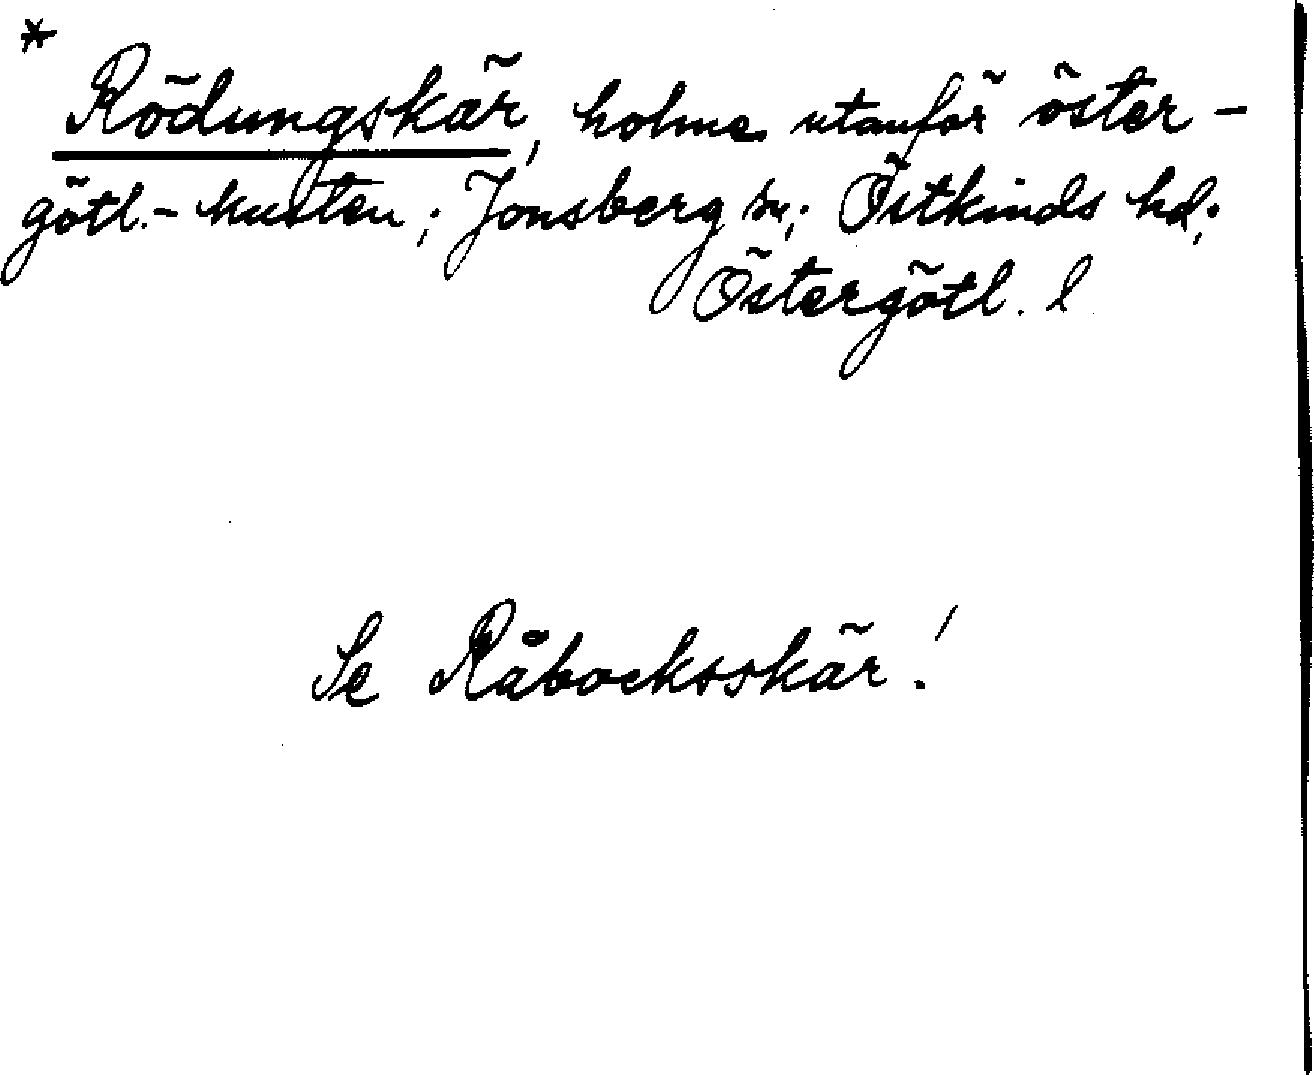 *
Rödungskär, holme utanför öster-
götl.-kusten; Jonsberg sn; Östkinds hd;
Östergötl. l
Se Råbocksskär!